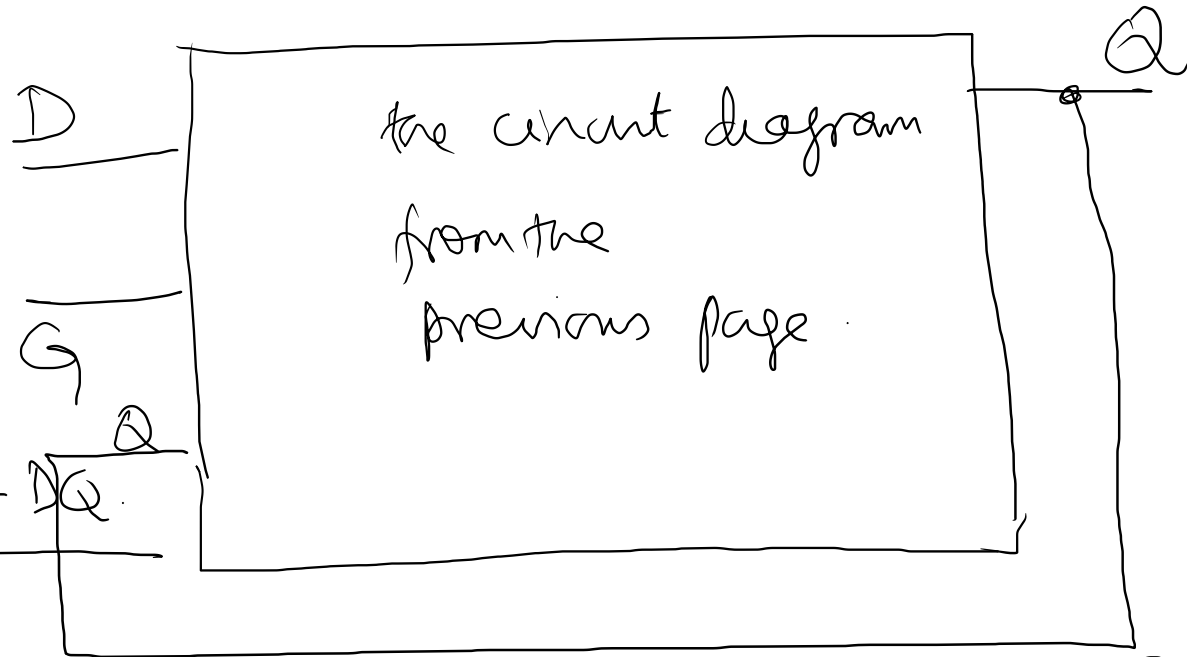 Q
D
the circuit diagram
from the
previous page.
G
Q
DQ.